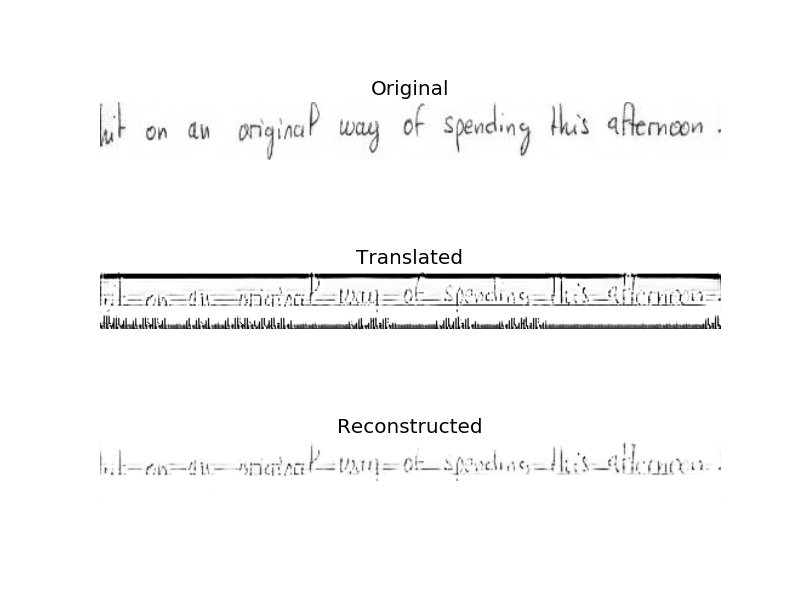 Original
hit on an original way of spending this afternoon .
Translated
on an original way of spending this afternoon
Reconstructed
hit on an original way of spending this afternoon .